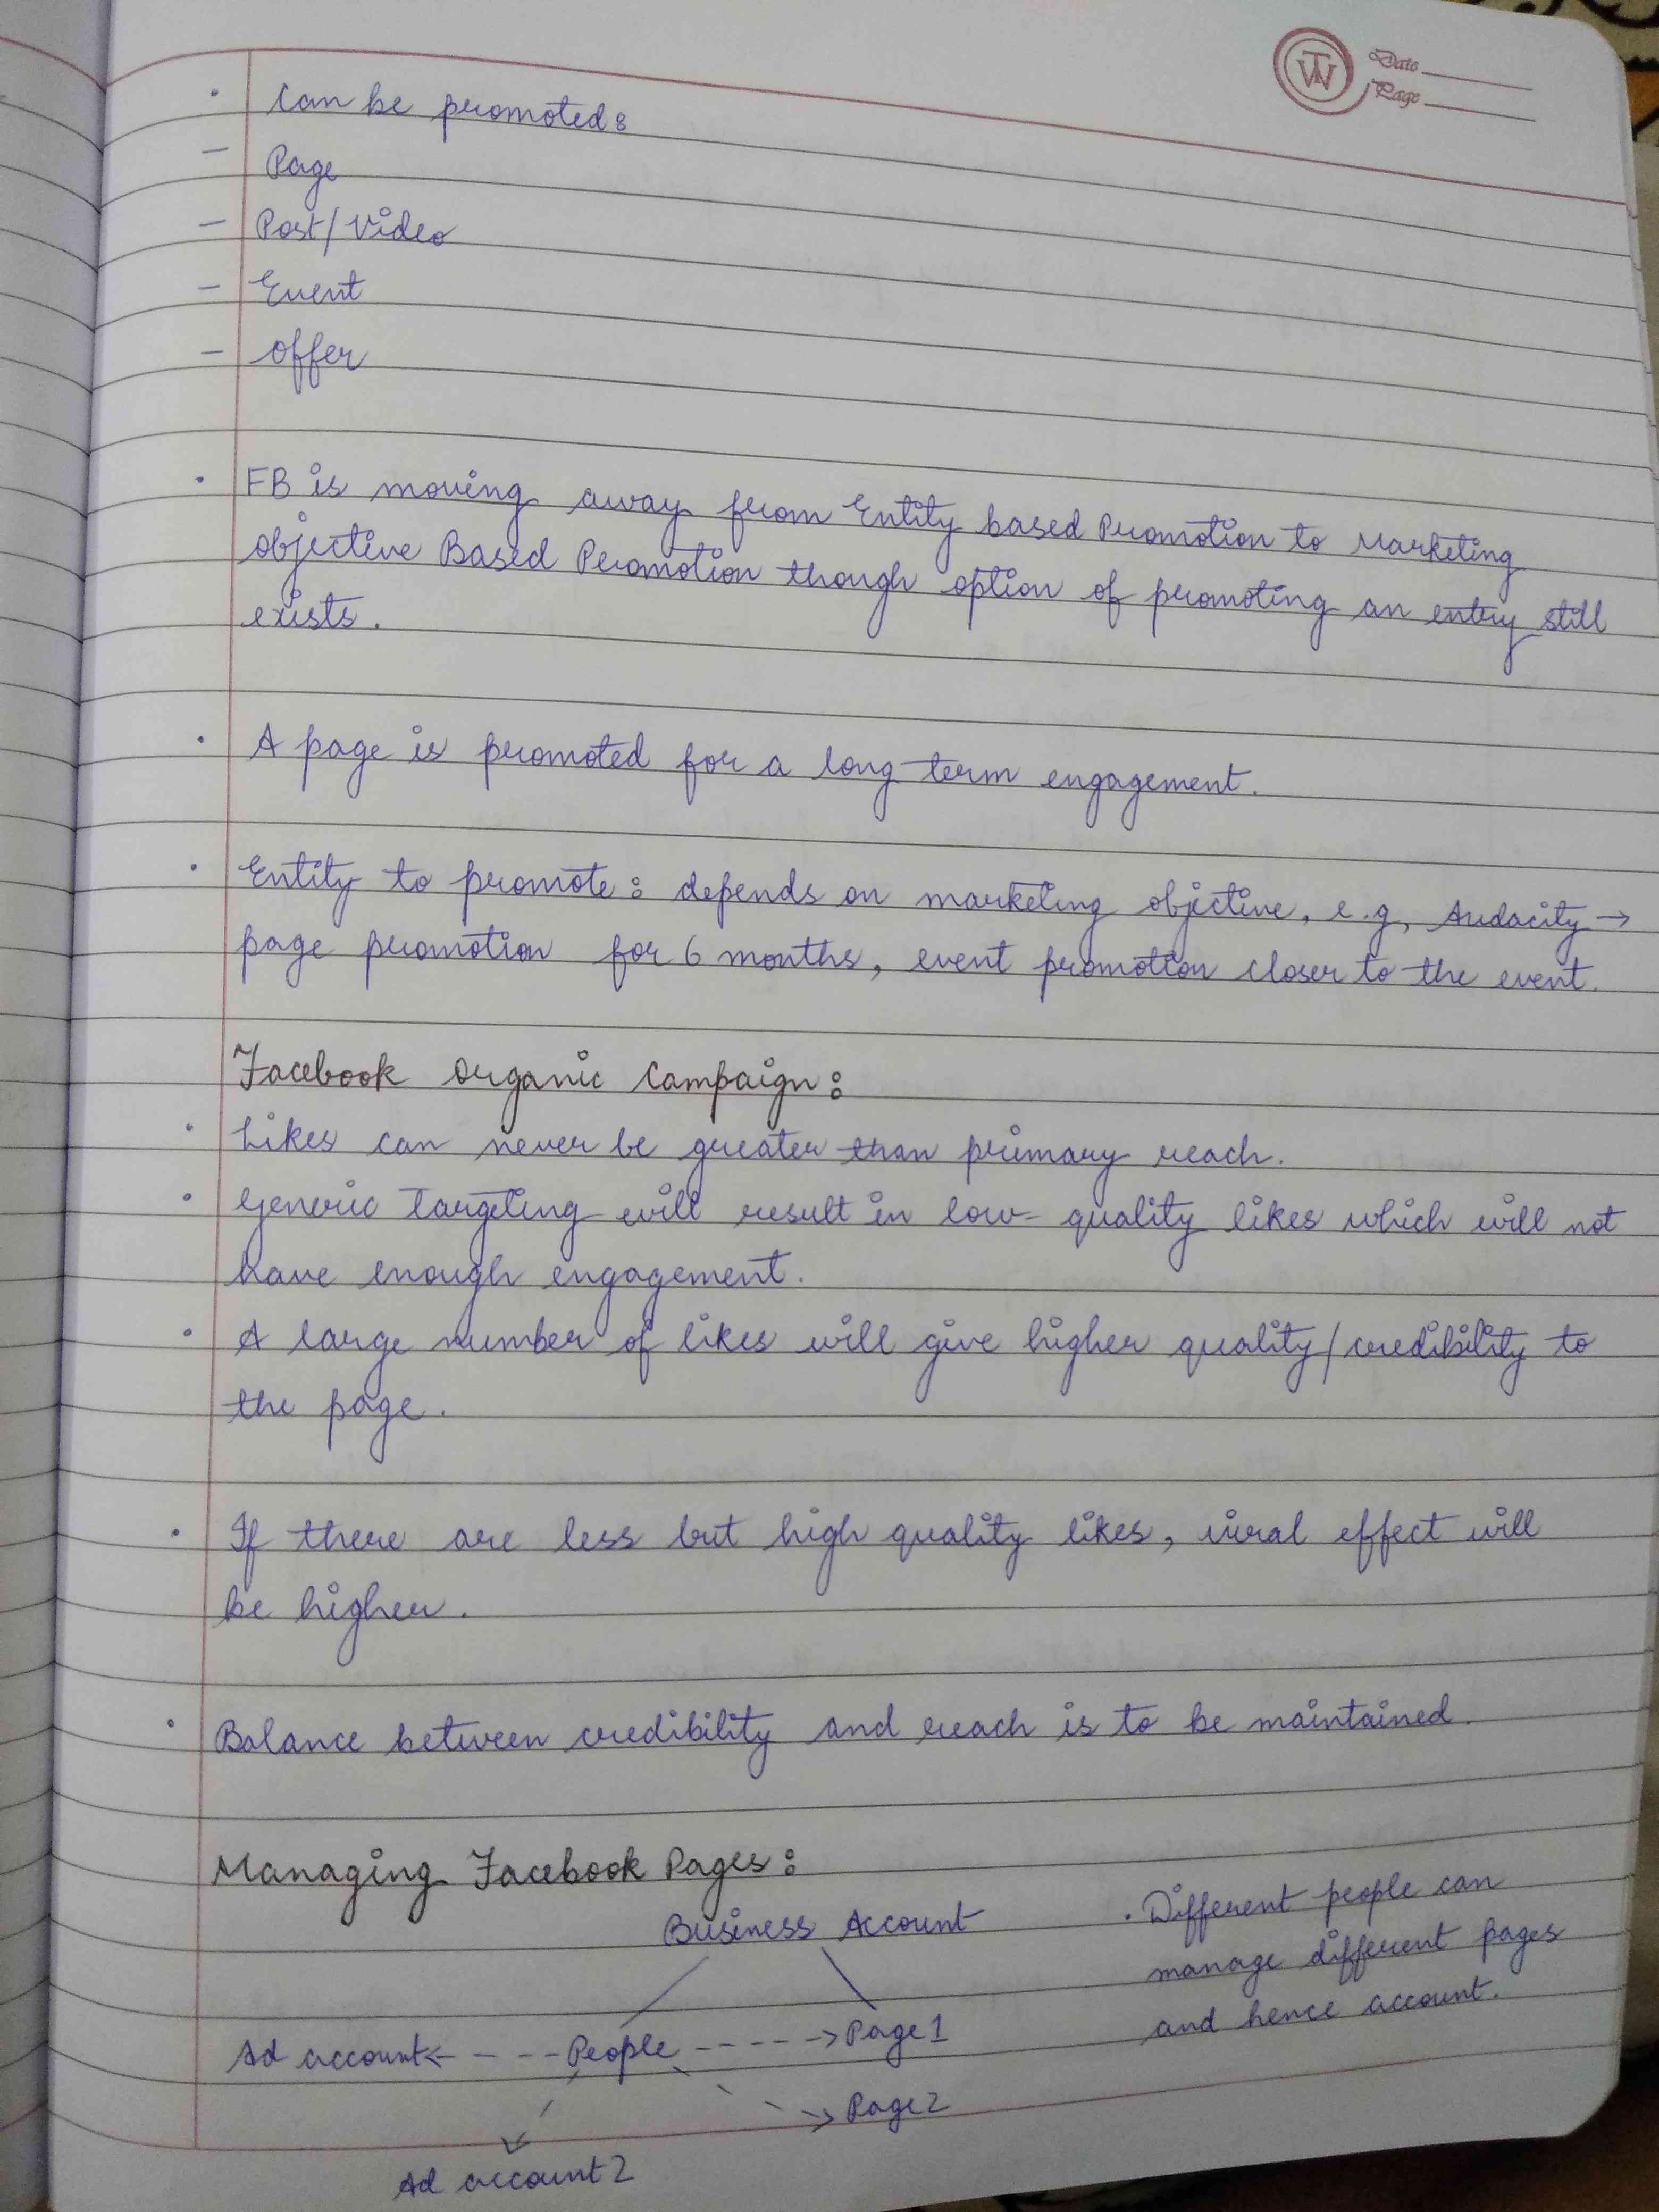 Date
Page
· Can be promoted:
- Page
- Post/Video
- Event
- Offer
· FB is moving away from Entity based Promotion to Marketing
objective Based Promotion though option of promoting an entry still
exists.
· A page is promoted for a long term engagement.
· Entity to promote: depends on marketing objective, e.g, Audacity →
page promotion for 6 months, event promotion closer to the event.
Facebook Organic Campaign:
· Likes can never be greater than primary reach.
· Generic Targeting will result in low-quality likes which will not
have enough engagement.
· A large number of likes will give higher quality/credibility to
the page.
· If there are less but high quality likes, viral effect will
be higher.
· Balance between credibility and reach is to be maintained.
Managing Facebook Pages:
Business Account
· Different people can
manage different pages
and hence account.
Ad account <- - - People - - - -> Page 1
Page 2
Ad account 2